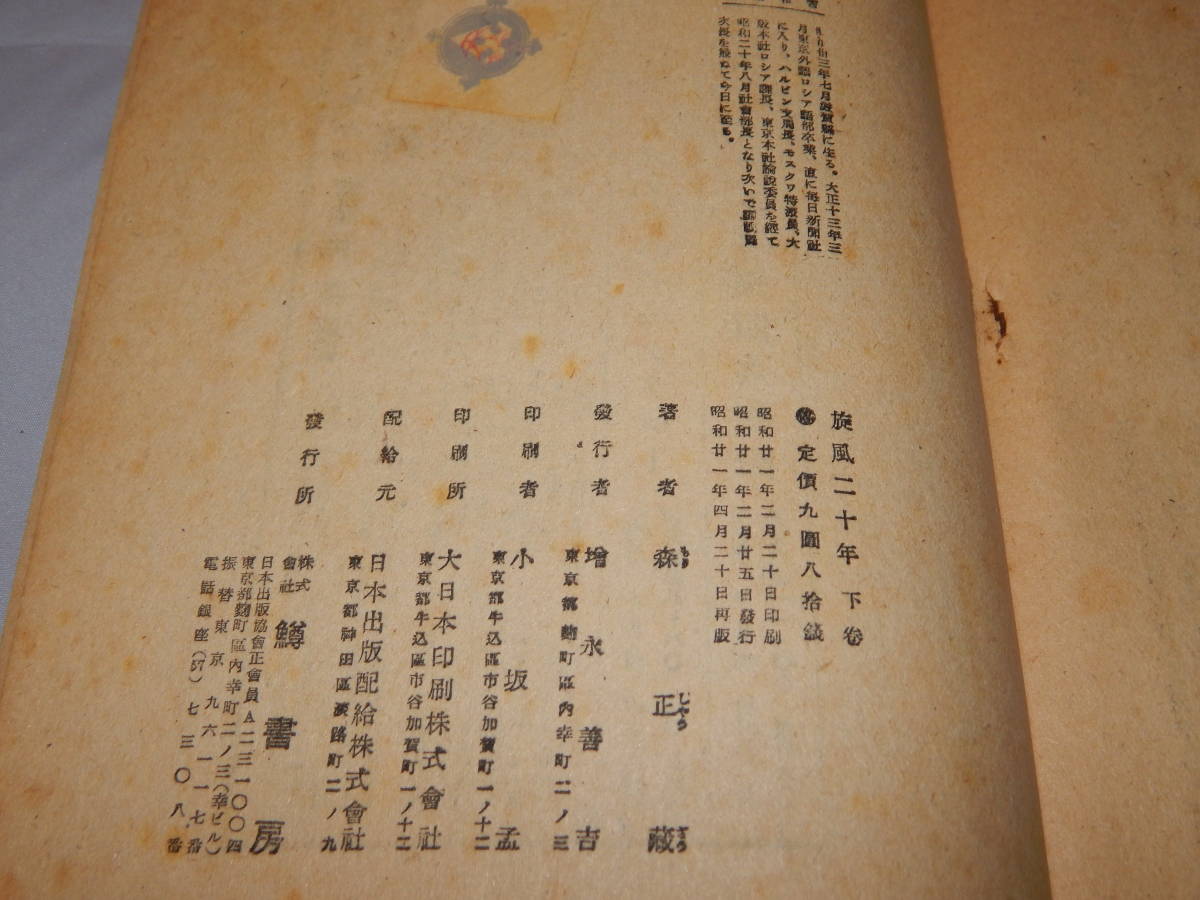 三年七月滋賀縣に生る。大正十三年三
月東京外語ロシア語部卒業、直に每日新聞社
に入り、ハルビン支局長、モスクワ特派員、大
阪本社ロシア課長、東京本社論說委員を經て
昭和二十年八月社會部長となり次いで
次長を兼ねて今日に至る。
旋風二十年 下卷
定價九圓八拾錢
昭和廿一年二月二十日印刷
昭和廿一年二月廿五日發行
昭和廿一年四月二十日再版
著者 森正藏
もり しやう ざう
發行者 增永善吉
東京都麴町區內幸町二ノ三
印刷者 小坂孟
東京都牛込區市谷加賀町一ノ十二
印刷所 大日本印刷株式會社
東京都牛込區市谷加賀町一ノ十二
配給元 日本出版配給株式會社
東京都神田區淡路町二ノ九
發行所 株式會社 鱒書房
日本出版協會正會員A二三一〇〇四
東京都麴町區內幸町二ノ三(幸ビル)
振替東京九六一一七番
電話銀座(57)七三〇八番